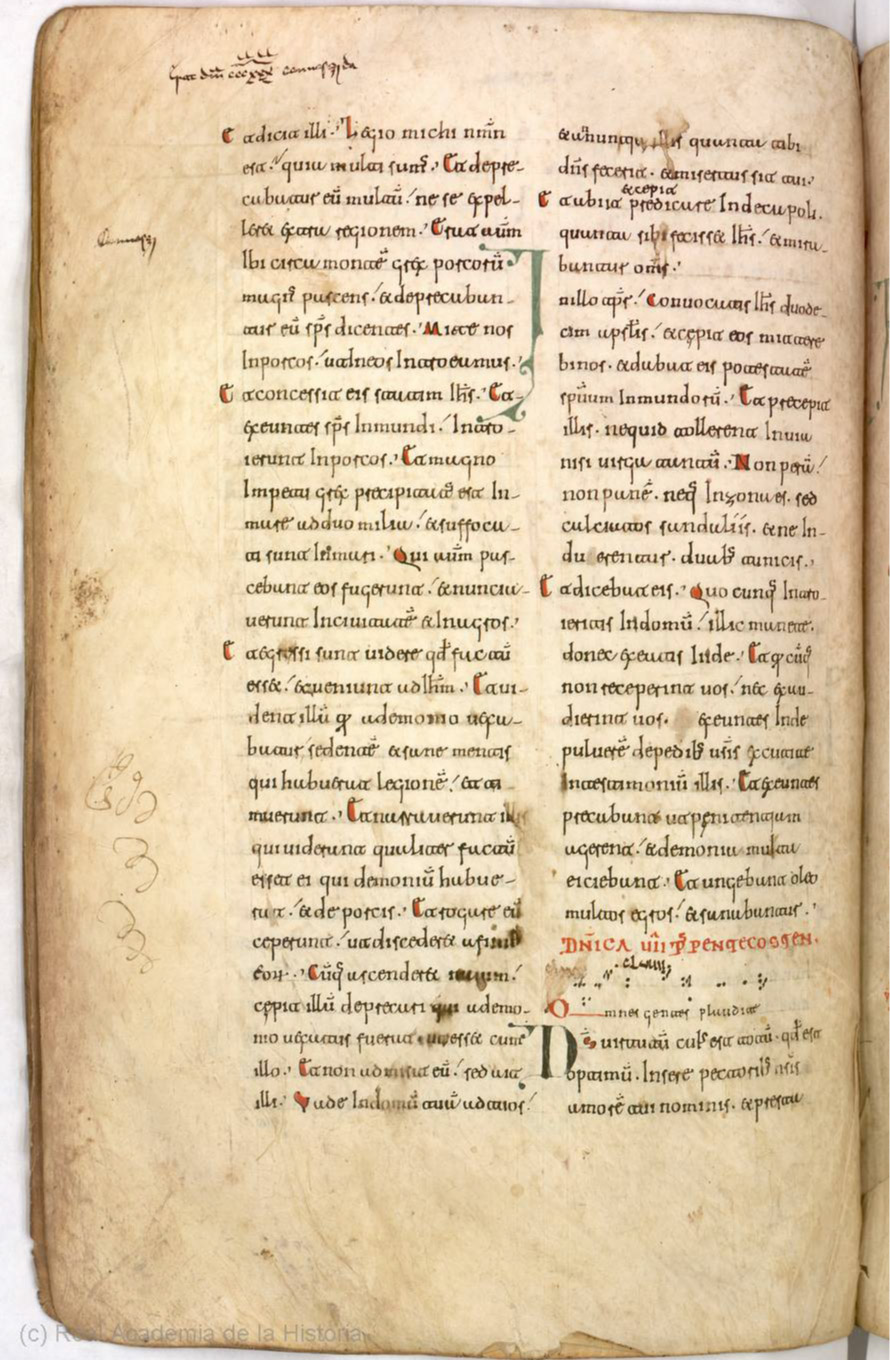 Et dicit illi. Legio michi nm̄n
est. quia multi sum᷒. Et depre-
cabatur eū multū. ne se expel-
leret extra regionem. Erat autm̄
Ibi circa montē grex porcorū
magn᷒ pascens. & deprecaban-
tur eū sp̄s dicentes. Mitte nos
Inporcos. ut Ineos Introeamus.
Et concessit eis statim Ih̄s. Et
exeuntes sp̄s Inmundi. Intro-
ierunt Inporcos. Et magno
Impetu grex precipitatus est In-
mare ad duo milia. & suffoca-
ti sunt Inmari. Qui autm̄ pas-
cebant eos fugerunt. & nuncia-
verunt Incivitatē & Inagros.
Et egressi sunt videre qd̄ factū
esset. & veniunt ad Ih̄m. Et vi-
dent illū qui ademonio vexa-
batur sedentē & sane mentis
qui habuerat legionē. & ti
muerunt. Et narraverunt illis
qui viderunt qualiter factū
esset ei qui demoniū habue-
rat. & de porcis. Et rogare eū
ceperunt. ut discederet a finib᷒
eorū. Cūq᷒ ascenderet navim.
cepit illū deprecari qui ademo-
nio vexatus fuerat ut esset cum
illo. Et non admisit eū. sed ait
illi. Vade Indomū tuā adtuos.
& adnuntia illis quanta tibi
dn̄s fecerit. & misertus sit tui.
cepit
Et abiit & predicare Indecapoli.
quanta sibi fecisset Ih̄s. & mira-
bantur om̄s.
Inillo tp̄r. Convocavit Ih̄s duode-
cim apostolis. & cepit eos mittere
binos. & dabat eis potestatē
spirituum Inmundorū. Et precepit
illis. nequid tollerent Invia
nisi virga tantū. Non perā.
non panē. neq᷒ Inzona es. sed
calciatos sandaliis. & ne In-
du erentur. duab᷒ tunicis.
Et dicebat eis. Quo cunq᷒ Intro-
ieritis Indomū. illic manete.
donec exeatis Inde. Et quicūq᷒
non receperint vos. nec au-
dierint vos. exeuntes Inde
pulverē depedib᷒ vr̄is excutite
Intestimoniū illis. Et exeuntes
predicabant ut penitentiam
agerent. & demonia multa
eiciebant. Et ungebant oleo
multos egros. & sanabantur.
DNICA VIII P̄ PENTECOSTEN.
Omnes gentes plaudite
Ds̄ virtutū cui᷒ est totū. qd̄ est
optimū. Insere pectorib᷒ nr̄is
amorē tui nominis. & presta